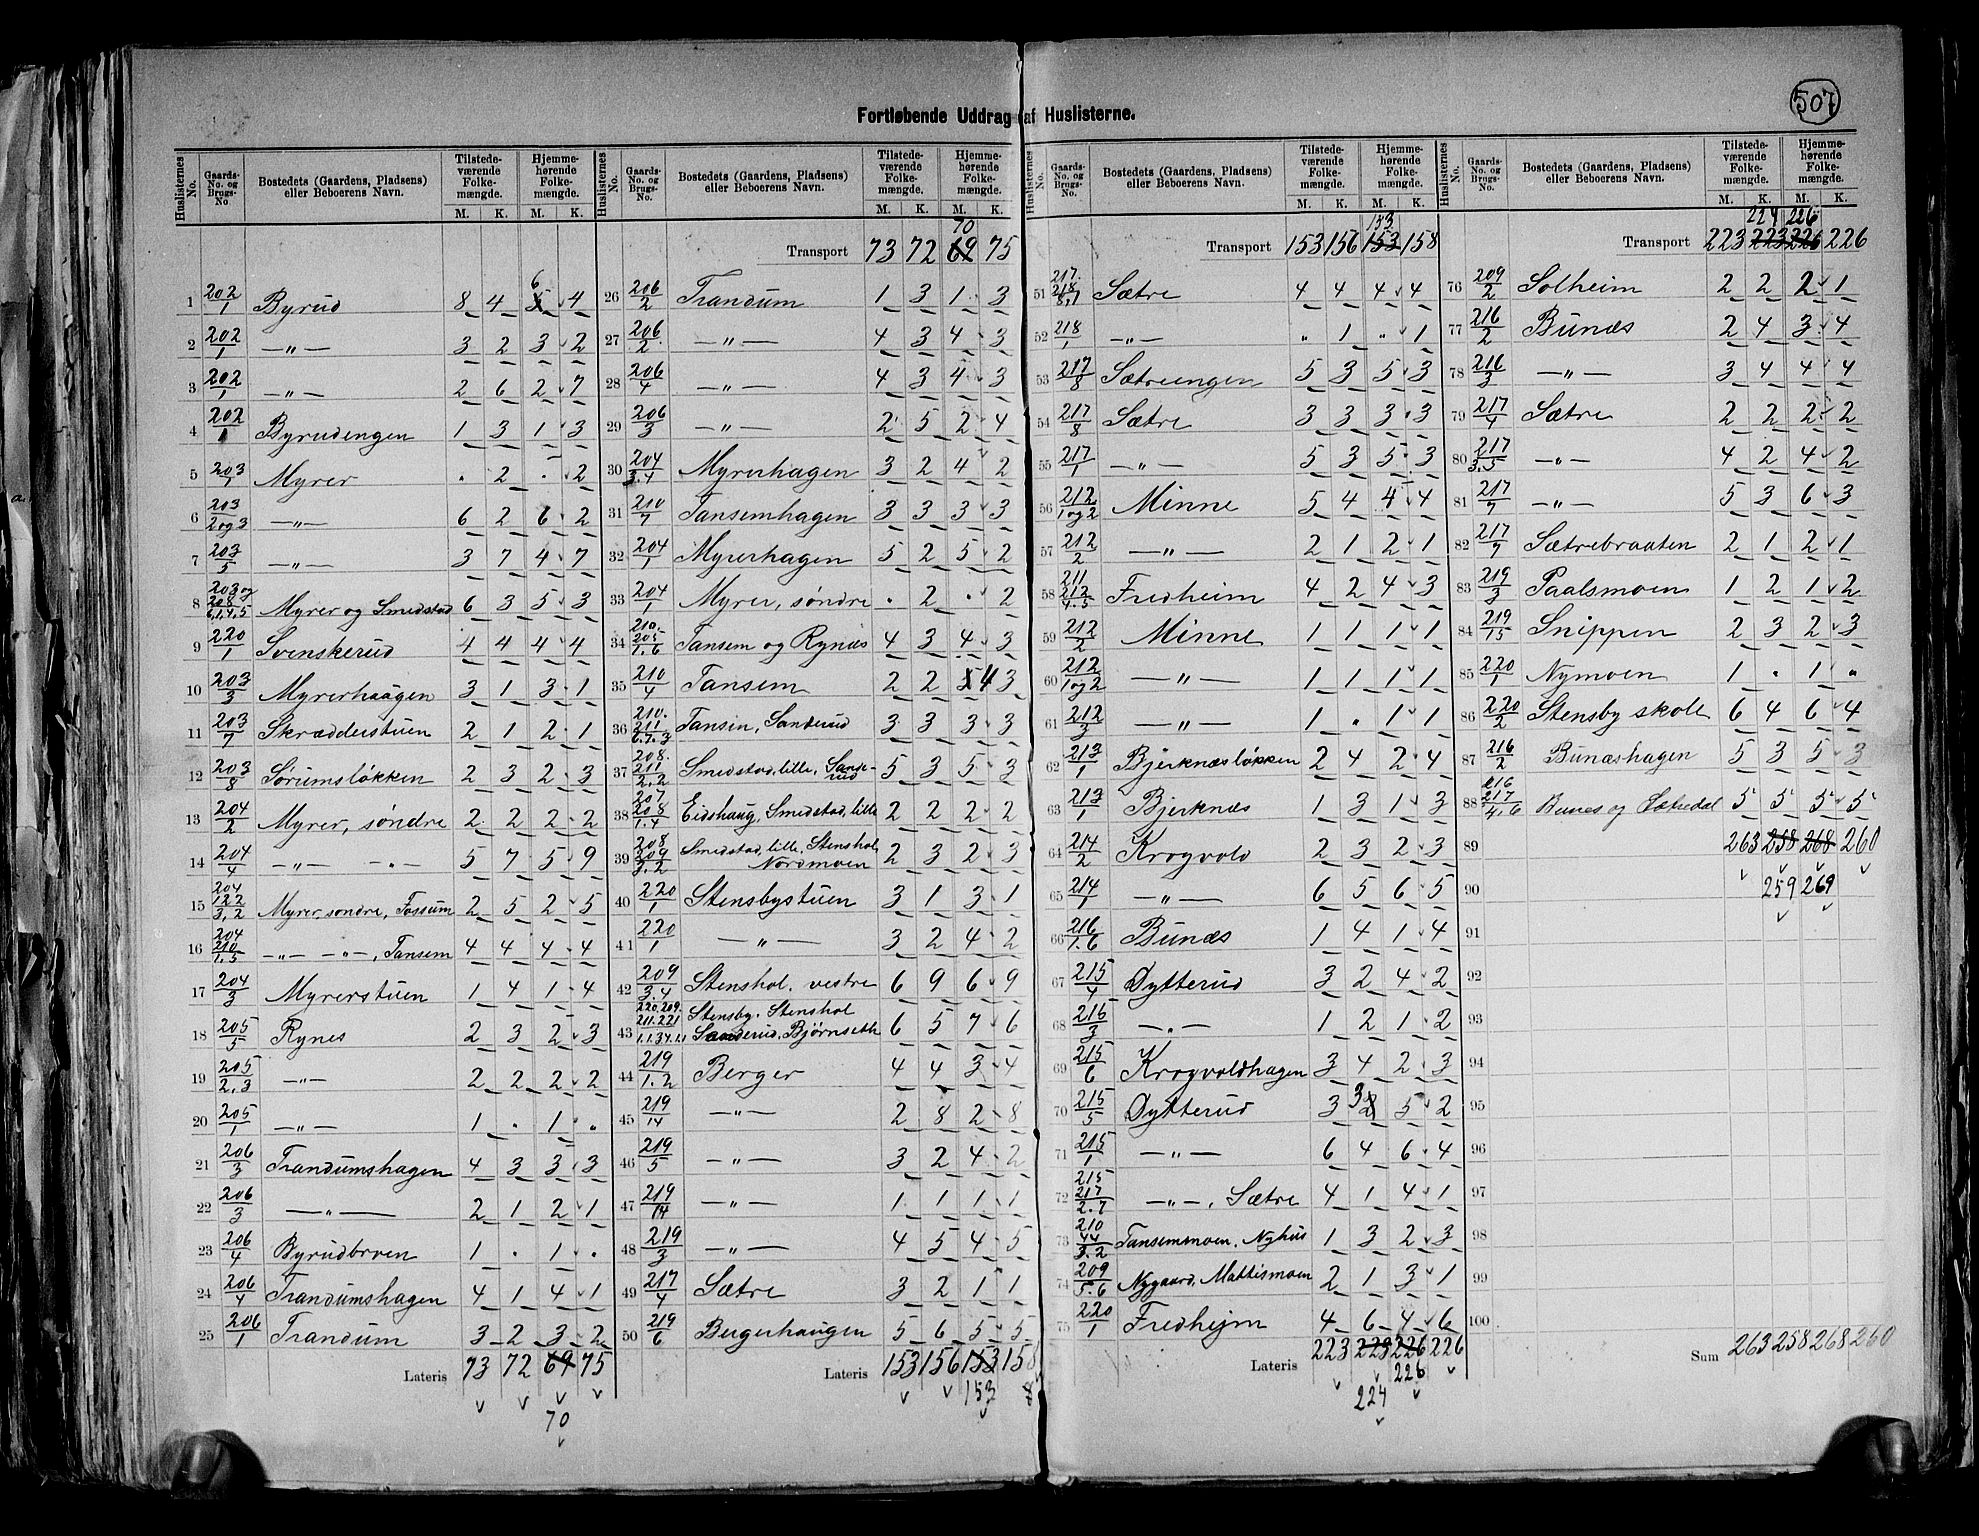 507
Fortløbende Uddrag af Huslisterne.
Huslisternes No. | Gaards-No. og Brugs-No. | Bostedets (Gaardens, Pladsens) eller Beboerens Navn. | Tilstedeværende Folkemængde. M. K. | Hjemmehørende Folkemængde. M. K.
1 202/1 Byrud 8 4 6 4
2 202/1 —"— 3 2 3 2
3 202/1 —"— 2 6 2 7
4 202/1 Byrudengen 1 3 1 3
5 203/1 Myrer . 2 . 2
6 203/2og3 —"— 6 2 6 2
7 203/5 —"— 3 7 4 7
8 203og 208/6,1,4,5 Myrer og Smedstad 6 3 5 3
9 220/1 Svenskerud 4 4 4 4
10 203/3 Myrerhaagen 3 1 3 1
11 203/7 Skrædderstuen 2 1 2 1
12 203/8 Sørumsløkken 2 3 2 3
13 204/2 Myrer, søndre 2 2 2 2
14 204/4 —"— —"— 5 7 5 9
15 204 122/3,2 Myrer søndre, Fossum 2 5 2 5
16 204 210/1.5 —"— —"—, Tansem 4 4 4 4
17 204/3 Myrerstuen 1 4 1 4
18 205/5 Rynes 2 3 2 3
19 205/2.3 —"— 2 2 2 2
20 205/1 —"— 1 . 1 .
21 206/3 Trandumshagen 4 3 3 3
22 206/3 —"— 2 1 2 1
23 206/4 Byrudbroen 1 . 1 .
24 206/4 Trandumshagen 4 1 4 1
25 206/1 Trandum 3 2 3 2
Lateris 73 72 69 75
70
Huslisternes No. | Gaards-No. og Brugs-No. | Bostedets (Gaardens, Pladsens) eller Beboerens Navn. | Tilstedeværende Folkemængde. M. K. | Hjemmehørende Folkemængde. M. K.
70
Transport 73 72 69 75
26 206/2 Trandum 1 3 1 3
27 206/2 —"— 4 3 4 3
28 206/4 —"— 4 3 4 3
29 206/3 —"— 2 5 2 4
30 204/3.4 Myrerhagen 3 2 4 2
31 210/7 Tansemhagen 3 3 3 3
32 204/1 Myrerhagen 5 2 5 2
33 204/1 Myrer, søndre . 2 . 2
34 210. 205/1.6 Tansem og Rynæs 4 3 4 3
35 210/4 Tansem 2 2 4 3
36 210. 211/6.7.3 Tansin, Sanderud 3 3 3 3
37 208. 211/2,2 Smedstad, lille, Sanderud 5 3 5 3
38 207 208/1.4 Eidshaug, Smedstad, lille 2 2 2 2
39 208 209/3.2 Smedstad, lille, Stenshol, Nordmoen 2 3 2 3
40 220/1 Stensbystuen 3 1 3 1
41 220/1 —"— 3 2 4 2
42 209/3.4 Stenshol, vestre 6 9 6 9
43 220.209. 211.221/1.1.34.1.1 Stensby, Stenshol Sanderud, Bjørnseth 6 5 7 6
44 219/1.2 Berger 4 4 3 4
45 219/14 —"— 2 8 2 8
46 219/5 —"— 3 2 4 2
47 219/14 —"— 1 1 1 1
48 219/3 —"— 4 5 4 5
49 217/4 Sætre 3 2 1 1
50 219/6 Bergerhaugen 5 6 5 5
Lateris 153 156 153 158
153 8
Huslisternes No. | Gaards-No. og Brugs-No. | Bostedets (Gaardens, Pladsens) eller Beboerens Navn. | Tilstedeværende Folkemængde. M. K. | Hjemmehørende Folkemængde. M. K.
153
Transport 153 156 153 158
51 217. 218/8,1 Sætre 4 4 4 4
52 218/1 —"— " 1 " 1
53 217/8 Sætreengen 5 3 5 3
54 217/8 Sætre 3 3 3 3
55 217/1 —"— 5 3 5 3
56 212/1og2 Minne 5 4 4 4
57 212/2 —"— 2 1 2 1
58 211 212/4.5 Fredheim 4 2 4 3
59 212/2 Minne 1 1 1 1
60 212/1og2 —"— 1 1 1 1
61 212/3 —"— 1 . 1 1
62 213/1 Bjerknæsløkken 2 4 2 4
63 213/1 Bjerknæs 1 3 1 3
64 214/2 Krogvold 2 3 2 3
65 214/1 —"— 6 5 6 5
66 216/1.6 Bunæs 1 4 1 4
67 215/4 Dytterud 3 2 4 2
68 215/3 —"— 1 2 1 2
69 215/6 Krogvoldhagen 3 4 2 3
70 215/5 Dytterud 3 3 5 2
71 215/1 —"— 6 4 6 4
72 215 217/2.7 —"—, Sætre 4 1 4 1
73 210 44/3.2 Tansemmoen, Nyhus 1 3 2 3
74 209/5.6 Nygaard, Mattismoen 2 1 3 1
75 220/1 Fredhejm 4 6 4 6
Lateris 223 223 226 226
224 226
Huslisternes No. | Gaards-No. og Brugs-No. | Bostedets (Gaardens, Pladsens) eller Beboerens Navn. | Tilstedeværende Folkemængde. M. K. | Hjemmehørende Folkemængde. M. K.
224 226
Transport 223 223 226 226
76 209/2 Solheim 2 2 2 1
77 216/2 Bunæs 2 4 3 4
78 216/3 —"— 3 4 4 4
79 217/4 Sætre 2 2 2 2
80 217/3.5 —"— 4 2 4 2
81 217/7 —"— 5 3 6 3
82 217/7 Sætrebraaten 2 1 2 1
83 219/3 Paalsmoen 1 2 1 2
84 219/15 Snippen 2 3 2 3
85 220/1 Nymoen 1 . 1 .
86 220/2 Stensby skole 6 4 6 4
87 216/2 Bunæshagen 5 3 5 3
88 216 217/4.6 Bunes og Sætredal 5 5 5 5
89 263 258 268 260
90 259 269
91
92
93
94
95
96
97
98
99
100
Sum 263 258 268 260